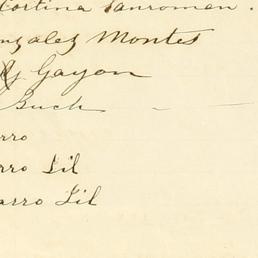 Cortina Sanroman.
onzalez Montes
Gayon
Buch
rro
rro Gil
arro Gil